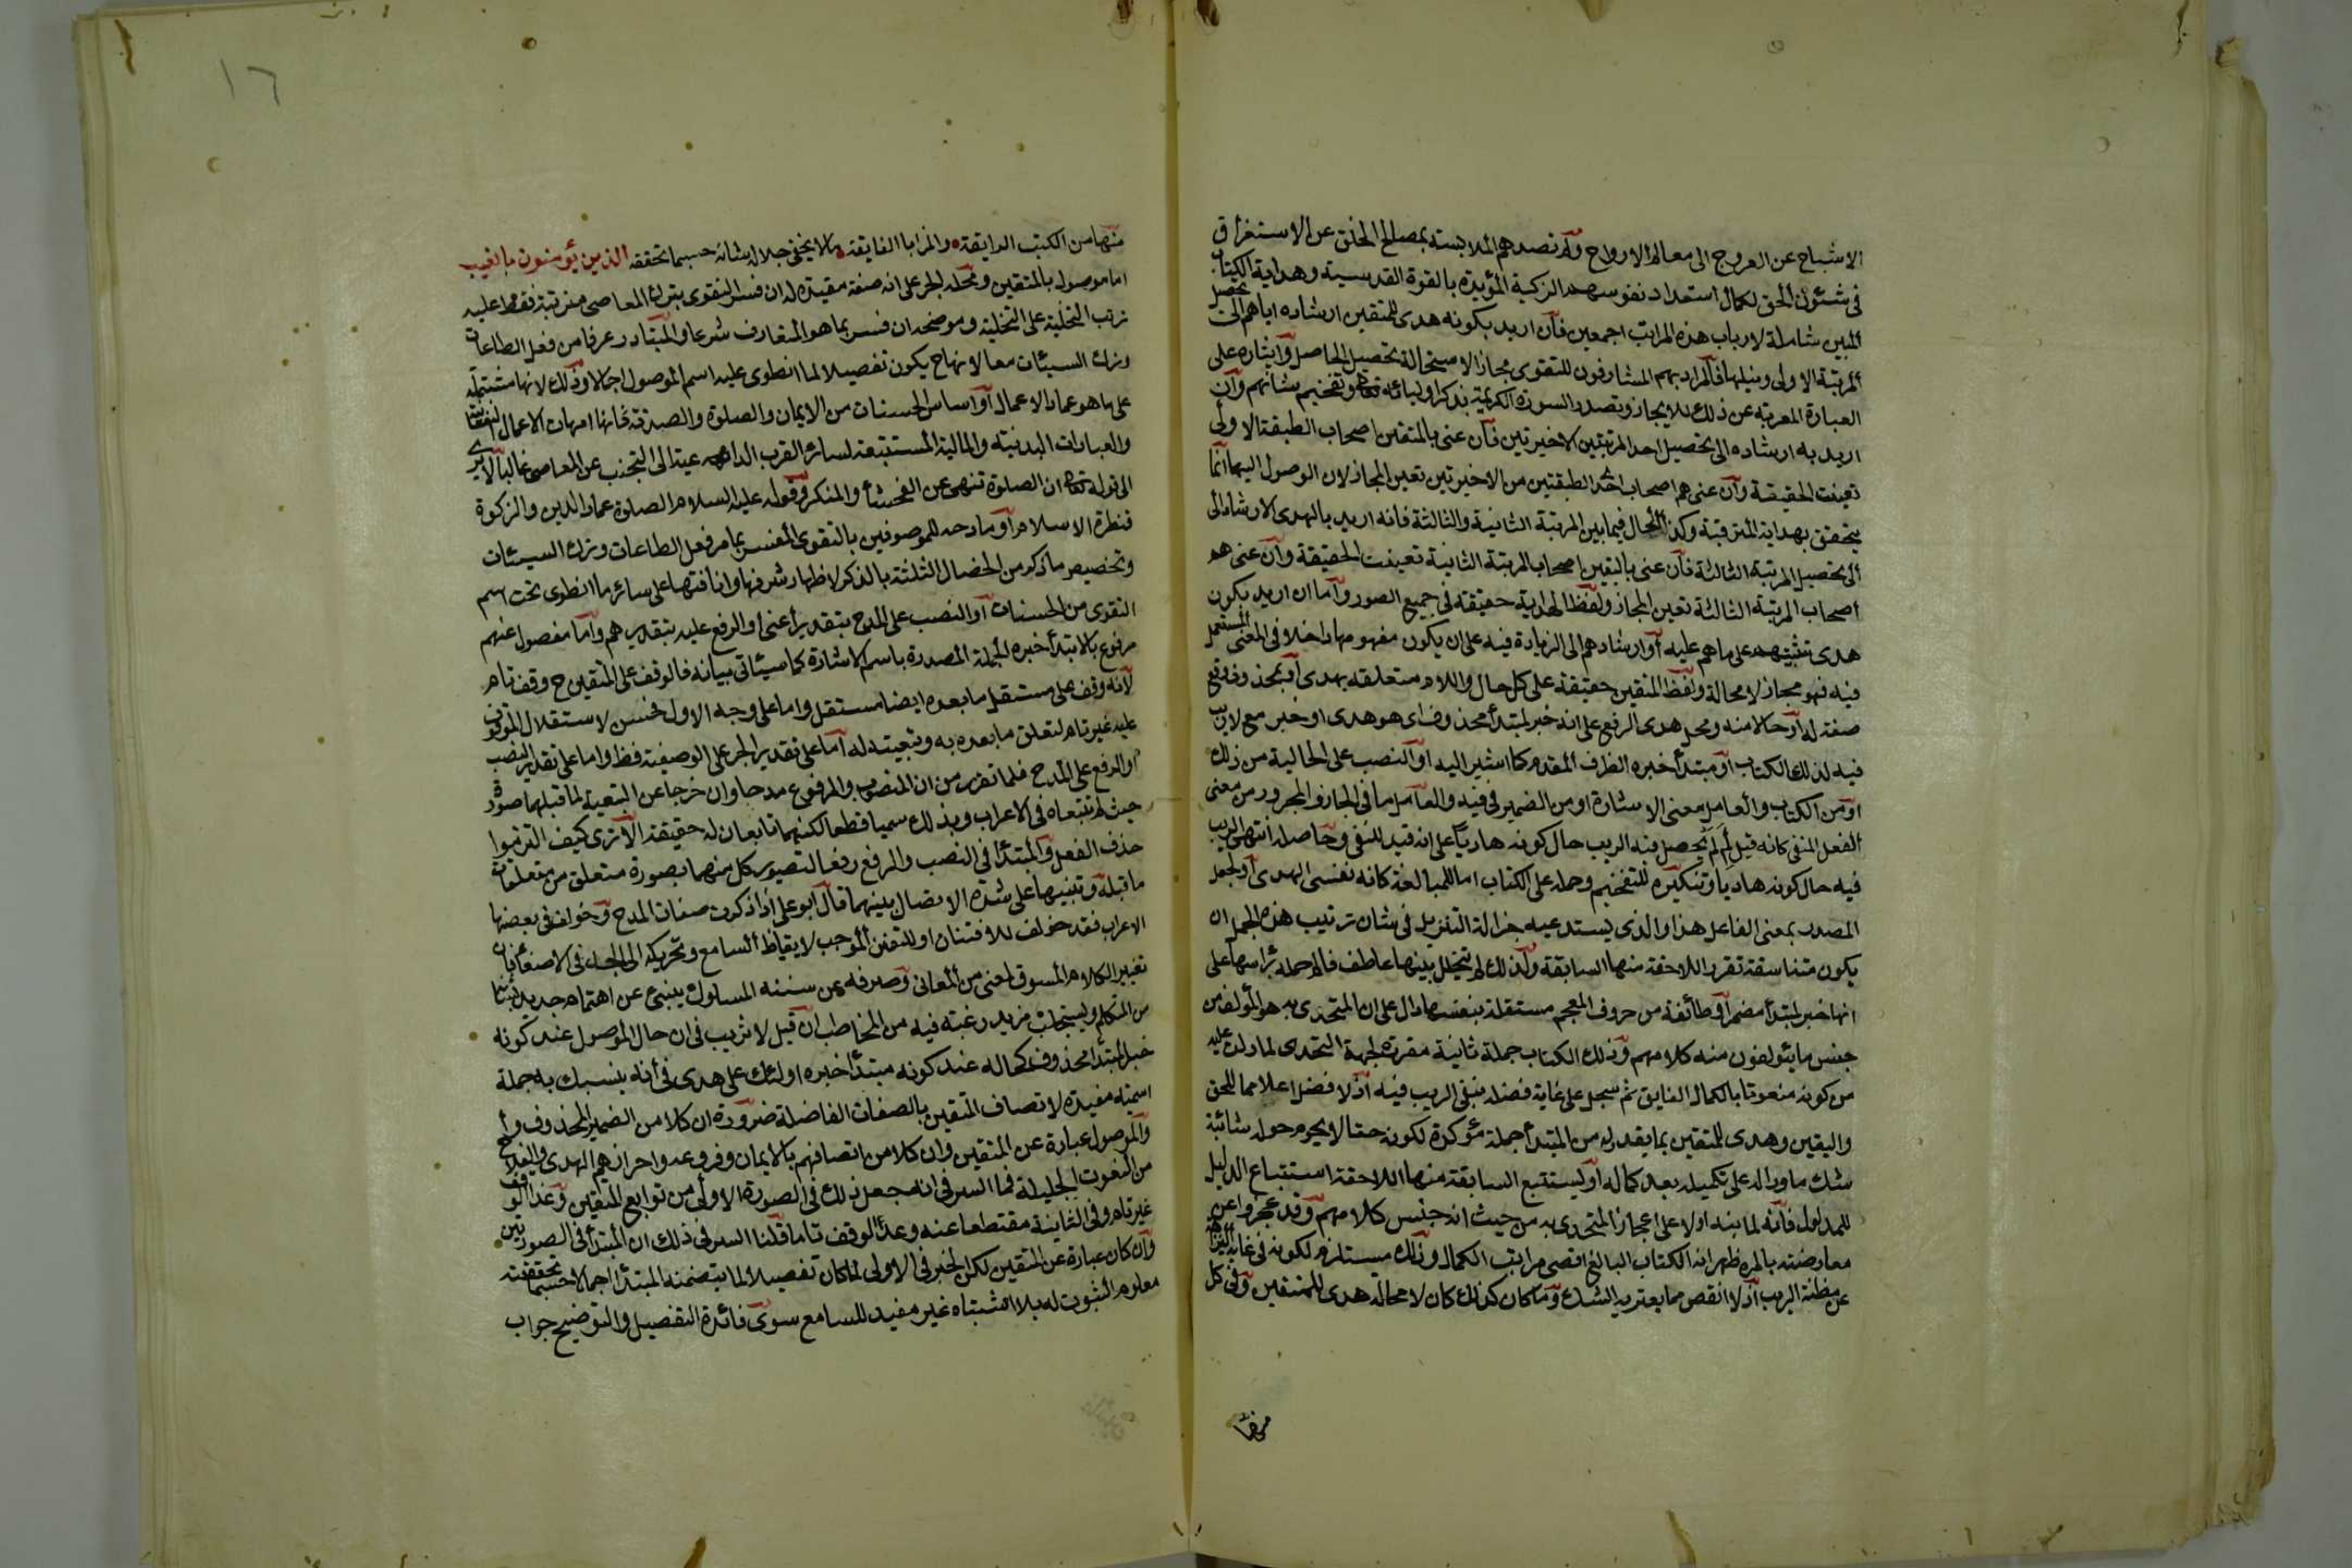 الاشباح عن العروج الى معالم الارواح ولم تصدهم الملابسة بمصالح الخلق عن الاستغراق
فى شئون الحق لكمال استعداد نفوسهم الزكية المؤيدة بالقوة القدسية وهداية الكتاب
المبين شاملة لارباب هذه المراتب اجمعين فان اريد بكونه هدى للمتقين ارشاده اياهم الى تحصيل
المرتبة الاولى ونيلها فالمراد بهم المشارفون للتقوى مجازا لاستحالة تحصيل الحاصل وايثاره على
العبارة المعربة عن ذلك للايجاز وتصدير السورة الكريمة بذكر اوليائه تعالى وتفخيم شانهم وان
اريد به ارشاده الى تحصيل احد المرتبتين الاخيرتين فان عنى بالمتقين اصحاب الطبقة الاولى
تعينت الحقيقة وان عنى هم اصحاب احدى الطبقتين من الاخيرتين تعين المجاز لان الوصول اليهما انما
يتحقق بهداية المترقبة وكذا الحال فيما بين المرتبة الثانية والثالثة فانه اريد بالهدى الارشاد الى
الى تحصيل المرتبة الثالثة فان عنى بالمتقين اصحاب المرتبة الثانية تعينت الحقيقة وان عنى هم
اصحاب المرتبة الثالثة تعين المجاز ولفظ الهداية حقيقة فى جميع الصور واما ان اريد بكون
هدى تثبيتهم على ماهم عليه او ارشادهم الى الزيادة فيه على ان يكون مفهومها داخلا فى المعنى المستعمل
فيه فهو مجاز لا محالة ولفظ المتقين حقيقة على كل حال واللام متعلقة بهدى او بمحذوف وقع
صفة له او حالا منه ومحل هدى الرفع على انه خبر لمبتدأ محذوف اى هو هدى او خبر مع لا ريب
فيه لذلك الكتاب او مبتدأ خبره الظرف المقدم كما اشير اليه او النصب على الحالية من ذلك
او من الكتاب والعامل معنى الاشارة او من الضمير فى فيه والعامل ما فى الجار والمجرور من معنى
الفعل المنفى كانه قيل لم يحصل فيه الريب حال كونه هاديا على انه قيد للنفى وحاصله انتهى الريب
فيه حال كونه هاديا وتنكيره للتفخيم وحمله على الكتاب اما للمبالغة كانه نفس الهدى او لجعل
المصدر بمعنى الفاعل هذا والذى يستدعيه جزالة التنزيل فى شان ترتيب هذه الجمل ان
يكون متناسقة تقرر اللاحقة منها السابقة ولذلك لم يتخلل بينها عاطف فالم جملة برأسها على
انها خبر لمبتدأ مضمر او طائفة من حروف المعجم مستقلة بنفسها دال على ان المتحدى به هو المؤلف من
جنس ما يئولفون منه كلامهم وذلك الكتاب جملة ثانية مقررة لجهة التحدى لما دلت عليه
من كونه منعوتا بالكمال الفايق ثم سجل على غاية فضله بنفى الريب فيه اذ لا فضل اعلا مما للحق
واليقين وهدى للمتقين بما يقدر له من المبتدأ جملة مؤكدة لكونه حقا لا يحوم حوله شائبة
شك ما ودال على تكميله بعد كماله او يستتبع السابقة منها اللاحقة استتباع الدليل
للمدلول فانه لما نبه اولا على اعجاز المتحدى به من حيث انه جنس كلامهم وقد عجزوا عن
معارضته بالمرة ظهر انه الكتاب البالغ اقصى مراتب الكمال وذلك مستلزم لكونه فى غاية النزاهة
عن مظنة الريب اذ لا انقص مما يعتريه الشك وما كان كذلك كان لا محالة هدى للمتقين وفى كل
منها
منها من الكتب الرايقة والمزايا الفايقة ما لا يخفى جلالة شانه حسبما تحققه الذين يؤمنون بالغيب
اما موصول بالمتقين ومحله الجر على انه صفة مقيدة له ان فسر التقوى بترك المعاصى فقط مترتبة عليه
ترتب التحلية على التخلية وموضحة ان فسر بما هو المتعارف شرعا والمتبادر عرفا من فعل الطاعات
وترك السيئات معا لانها ح يكون تفصيلا لما انطوى عليه اسم الموصول اجمالا وذلك لانها مشتملة
على ما هو عماد الاعمال او اساس الحسنات من الايمان والصلوة والصدقة فانها امهات الاعمال النفسانية
والعبادات البدنية والمالية المستتبعة لسائر القرب الداعية الى التجنب عن المعاصى غالبا الا يرى
الى قوله تعالى ان الصلوة تنهى عن الفحشأ والمنكر وقوله عليه السلام الصلوة عماد الدين والزكوة
قنطرة الاسلام او مادحه للموصوفين بالتقوى المفسر بما مر فعل الطاعات وترك السيئات
وتخصيص ما ذكر من الخصال الثلثة بالذكر لاظهار شرفها وانافتها على سائر ما انطوى تحت اسم
التقوى من الحسنات او النصب على المدح بتقدير أعنى او الرفع عليه بتقدير هم واما مفصول عنهم
مرفوع بالابتدأ خبره الجملة المصدرة باسم الاشارة كما سيئاتى بيانه فالوقف على المتقين ح وقف تام
لانه وقف على مستقل ما بعده ايضا مستقل واما على وجه الاول فحسن لاستقلال الموقوف
عليه غير تام لتعلق ما بعده به وتبعيته له اما على تقدير الجر على الوصفية فظ واما على تقدير النصب
او الرفع على المدح فلما تقرر من ان المنصوب والمرفوع مدحا وان خرجا عن التبعية لما قبلهما صورة
حيث لم تتبعاه فى الاعراب وبذلك سميا قطعا لكنهما تابعان له حقيقة الا ترى كيف التزموا
حذف الفعل والمبتدأ فى النصب والرفع رفعا لتصوير كل منهما بصورة متعلق من متعلقات
ما قبله وتنبيها على شدة الاتصال بينهما قال ابو على اذا ذكرت صفات المدح وخولف فى بعضها
الاعراب فقد خولف للافتنان او للتفنن الموجب لايقاظ السامع وتحريكه الى الجد فى الاصغاء فان
تغيير الكلام المسوق لمعنى من المعانى وصرفه عن سننه المسلوك ينبئ عن اهتمام جديد بشأنه
من المتكلم ويستجلب مزيد رغبة فيه من المخاطب ان قيل لا تريب فى ان حال الموصول عند كونه
خبر المبتدأ محذوف كحاله عند كونه مبتدأ خبره اولئك على هدى فى أنه ينسبك به جملة
اسمية مفيدة لاتصاف المتقين بالصفات الفاضلة ضرورة ان كلا من الضمير المحذوف
والموصول عبارة عن المتقين وان كلا من اتصافهم بالايمان وفروعه واحرازهم الهدى والفلاح
من النعوت الجليلة فما السر فى انه جعل ذلك فى الصورة الاولى من توابع المتقين وعد الوقف
غير تام وفى الثانية مقتطعا عنه وعد الوقف تاما قلنا السر فى ذلك ان المبتدأ فى الصورتين
وان كان عبارة عن المتقين لكن الخبر فى الاولى لما كان تفصيلا لما يتضمنه المبتدأ اجمالا حسبما تحققته
معلوم الثبوت له بلا اشتباه غير مفيد للسامع سوى فائدة التفصيل والتوضيح جواب
١٦